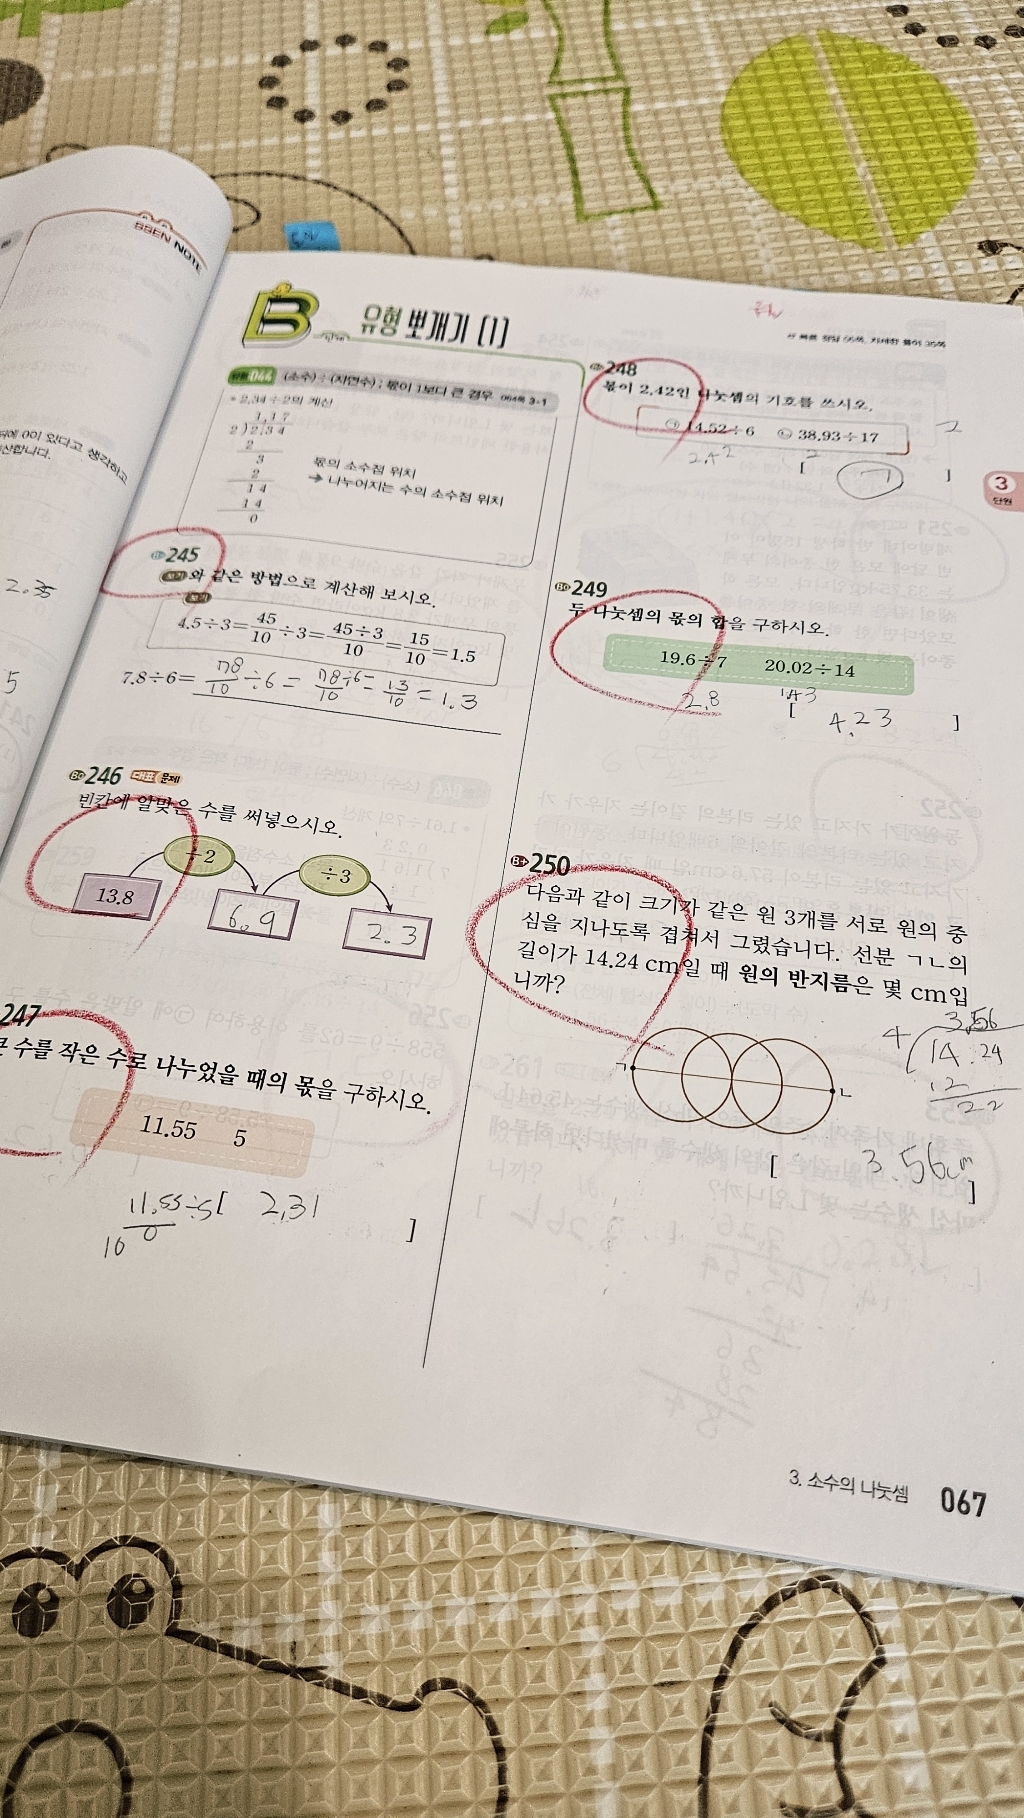 SSEN NOTE
뒤에 0이 있다고 생각하고
산합니다.
B
유형 뽀개기 (1)
유형 044 (소수)÷(자연수); 몫이 1보다 큰 경우 064쪽 3-1
• 2.34÷2의 계산
1.17
2)2.34
2
3
2
14
14
0
몫의 소수점 위치
→ 나누어지는 수의 소수점 위치
245
보기와 같은 방법으로 계산해 보시오.
보기
4.5÷3=45/10÷3=45÷3/10=15/10=1.5
7.8÷6= 78/10÷6= 78÷6/10= 13/10 = 1.3
246 대표 문제
빈칸에 알맞은 수를 써넣으시오.
÷2 ÷3
13.8 6.9 2.3
247
큰 수를 작은 수로 나누었을 때의 몫을 구하시오.
11.55 5
11.55÷5 [ 2.31 ]
10 0
248
몫이 2.42인 나눗셈의 기호를 쓰시오.
㉠ 14.52÷6 ㉡ 38.93÷17
2.42 2
[ ㄱ ]
3
단원
249
두 나눗셈의 몫의 합을 구하시오.
19.6÷7 20.02÷14
2.8 1.43
[ 4.23 ]
B+ 250
다음과 같이 크기가 같은 원 3개를 서로 원의 중
심을 지나도록 겹쳐서 그렸습니다. 선분 ㄱㄴ의
길이가 14.24 cm일 때 원의 반지름은 몇 cm입
니까?
ㄱ ㄴ
3.56
4 14.24
12
22
[ 3.56cm ]
3. 소수의 나눗셈 067